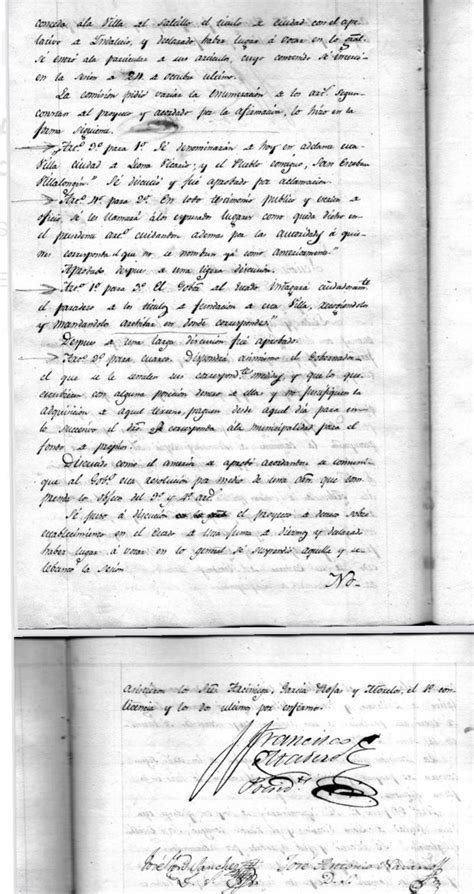 conceda á la Villa del Saltillo el titulo de ciudad con el ape-
lativo de
y declarado haber lugar á votar en lo gral.
Se entró á la particular de sus articulos, cuyo contenido se
en la sesion de 24 de octubre ultimo.
La comision pidió variar la enumeracion de los art.
al proyecto y acordado por la afirmativa, lo hizo en la
forma siguiente.
"Art. 3º para 1º. Se denominarán de hoy en adelante esta
Villa ciudad de Leona Vicario, y el Pueblo contiguo, San Esteban
Villalongin." Se discutió y fué aprobado por aclamacion.
"Art. 4º para 2º. En todo testimonio publico y
oficio, se les llamará á los espresados lugares como queda dicho en
el precedente art. cuidandose ademas por las autoridades á quie-
nes corresponda el que no se nombren ya como
Aprobado despues de una ligera discusion.
"Art. 1º para 3º. El Gobno. del Estado
el paradero de los titulos de fundacion de esta Villa,
y mandandolos archivar en donde corresponda."
Despues de una larga discusion fué aprobado.
"Art. 2º para cuarto. Dispondrá asimismo el Gobernador
el que se le señalen sus correspondtes. medidas, y que los que
con alguna posicion dentro de ellas y no justifiquen la
adquisicion de aquel terreno paguen desde aquel dia para en
lo succesivo el que corresponda á la municipalidad para el
fondo de propios.
Discutido como el anterior se aprobó acordandose se comuni-
que al Gobno. esta resolucion por medio de una que com-
prenda los objetos del 3º y 4º art.
Se puso á discusion el proyecto de decreto sobre
establecimiento en el Estado de una y declarado
haber lugar á votar en lo general se suspendió aquella y se
lebantó la sesion.
No
asistieron los Sres. Arciniega, Garcia Rojas y el 1º con
licencia y los dos ultimos por enfermos.
Francisco
José Sanchez José Antonio Navarro